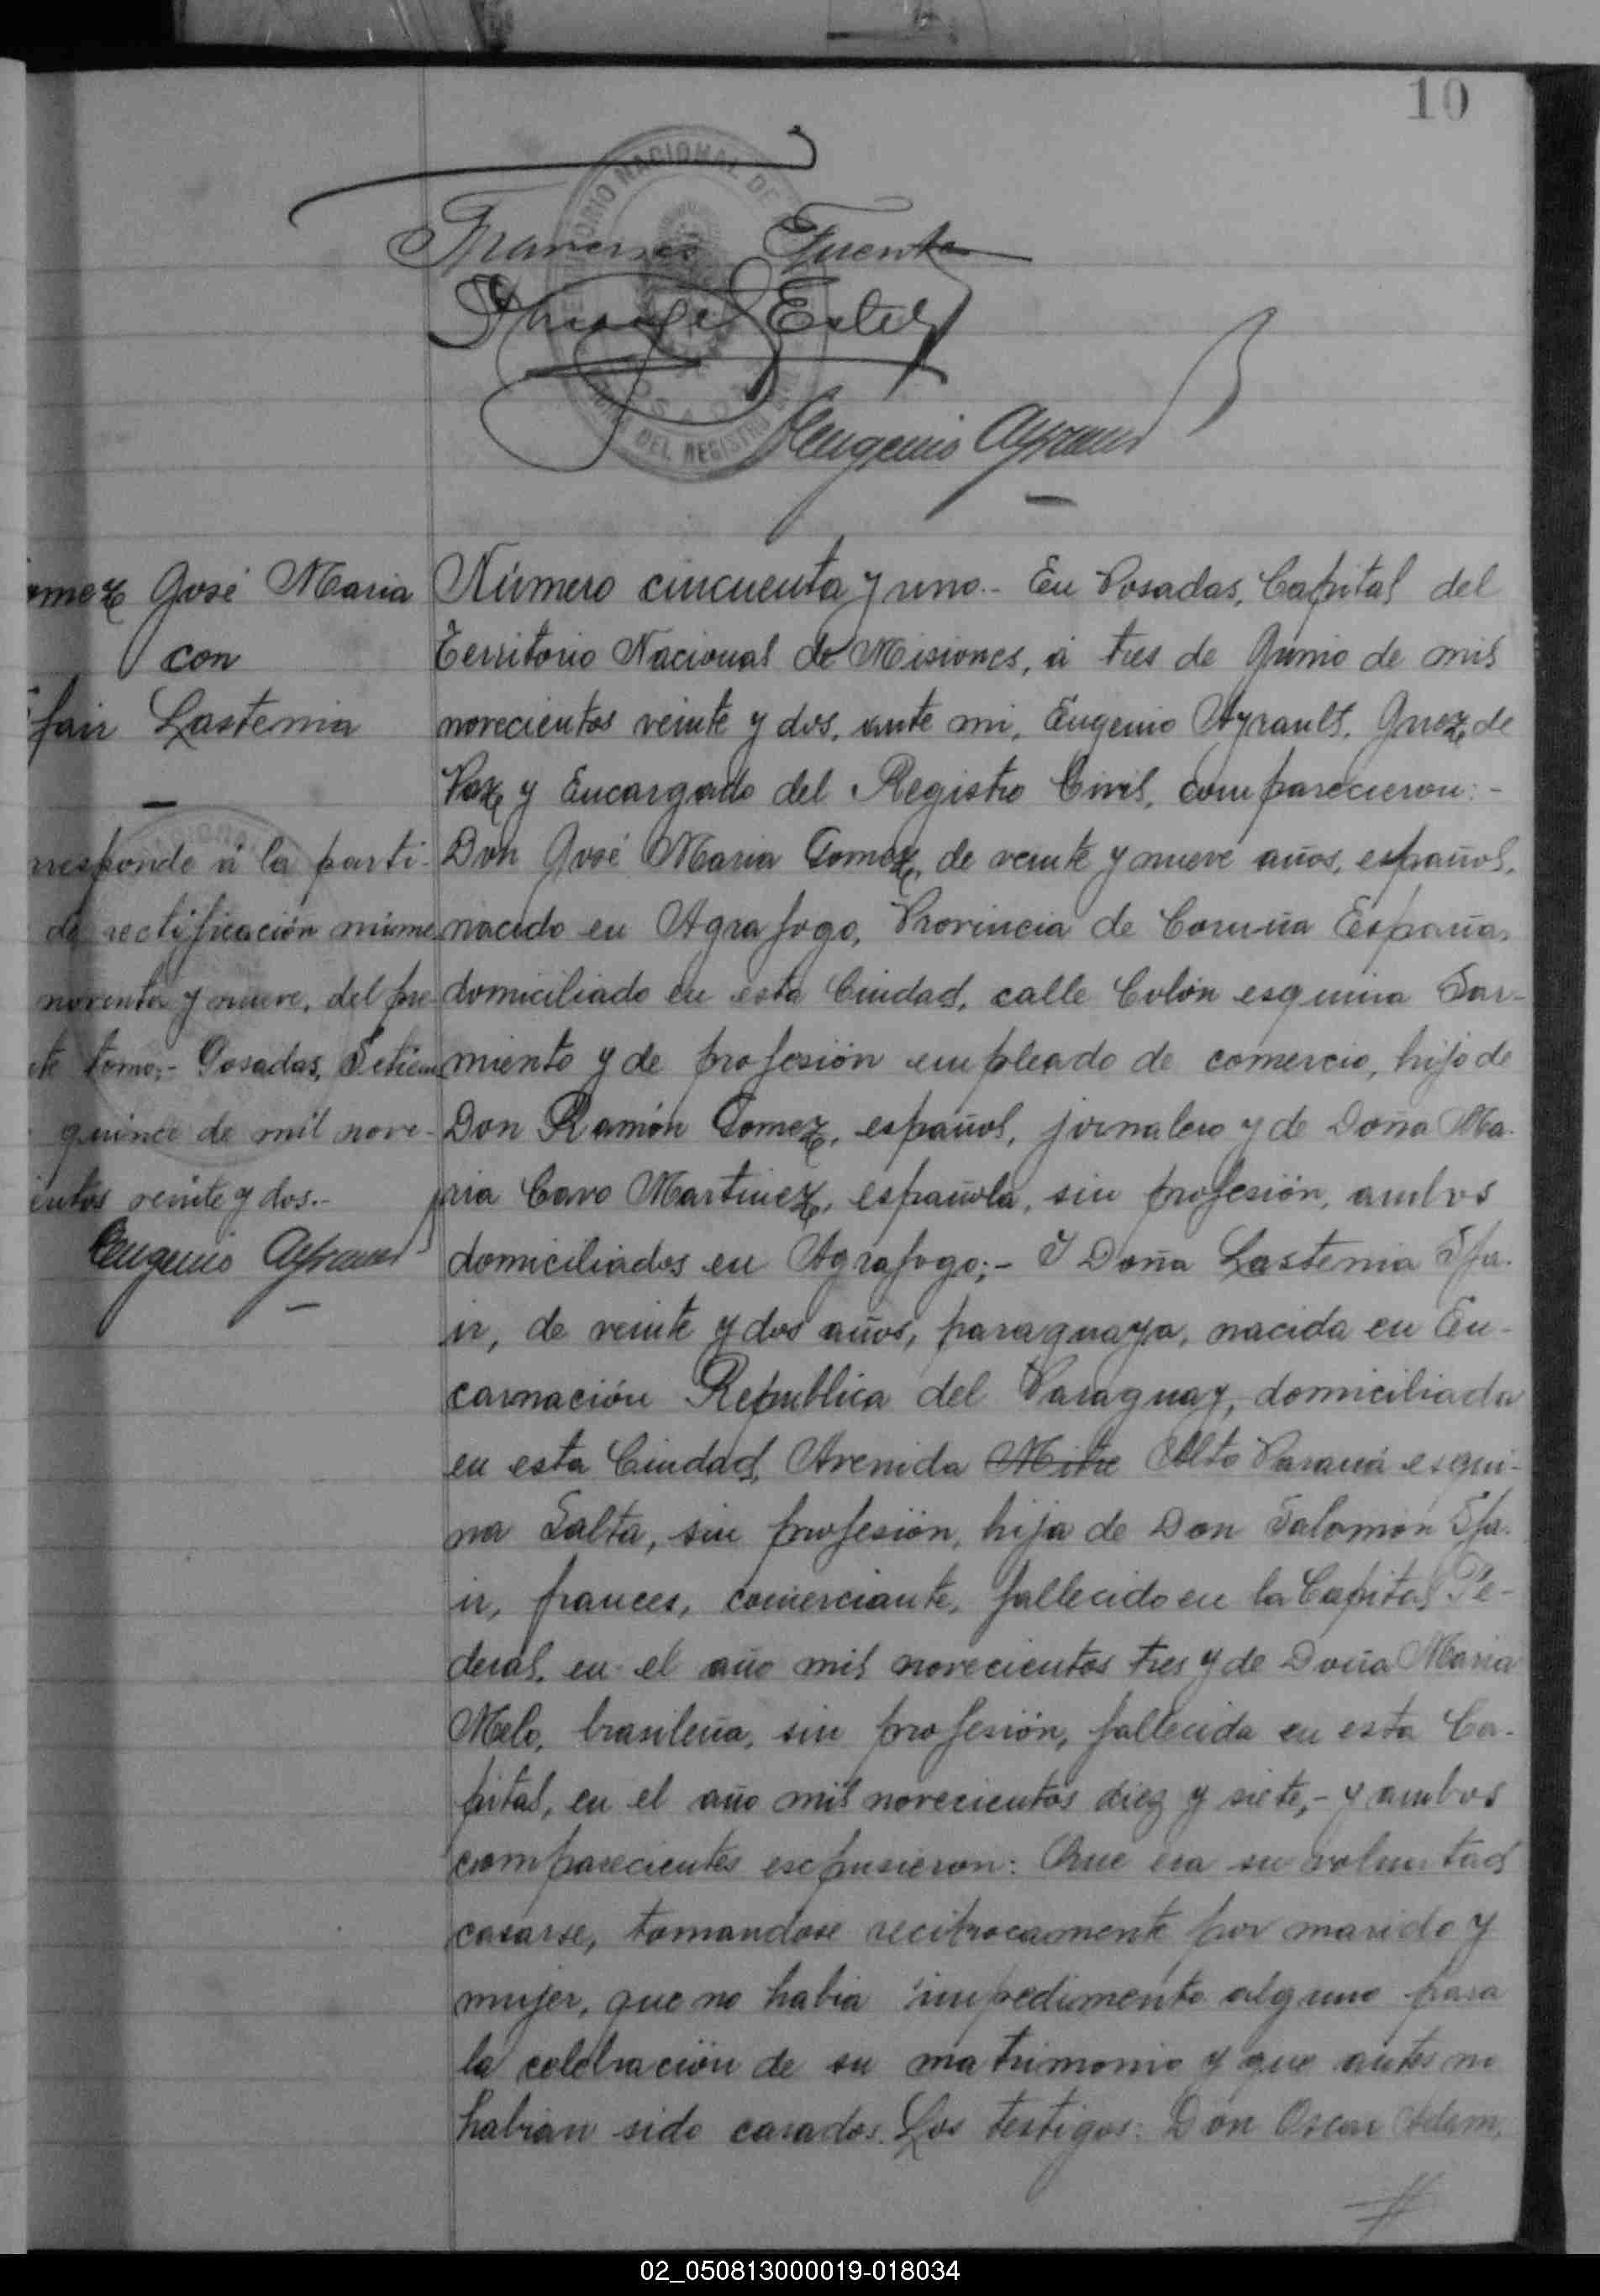 10
TERRITORIO NACIONAL DE
DEL REGISTRO
Francisco Fuente
Eugenio Ayrault
omez José Maria
con
fair Lastenia
rresponde á la parti-
de rectificación núme
noventa y nueve, del pre-
te tomo;- Posadas, Setiem
quince de mil nove-
ientos veinte y dos.-
Eugenio Ayrault
Número cincuenta y uno.- En Posadas, Capital del
Territorio Nacional de Misiones, á tres de Junio de mil
novecientos veinte y dos, ante mi, Eugenio Ayrault, Juez de
Paz y Encargado del Registro Civil, comparecieron:-
Don José Maria Gomez, de veinte y nueve años, español,
nacido en Agrafogo, Provincia de Coruña España,
domiciliado en esta Ciudad, calle Colón esquina Sar-
miento y de profesión empleado de comercio, hijo de
Don Ramón Gomez, español, jornalero y de Doña Ma-
ria Caro Martinez, española, sin profesión, ambos
domiciliados en Agrafogo;- Y Doña Lastenia Sfa-
ir, de veinte y dos años, paraguaya, nacida en En-
carnación Republica del Paraguay, domiciliada
en esta Ciudad, Avenida Mitre Alto Paraná esqui-
na Salta, sin profesión, hija de Don Salomon Sfa-
ir, frances, comerciante, fallecido en la Capital Fe-
deral, en el año mil novecientos tres y de Doña Maria
Melo, brasileña, sin profesión, fallecida en esta Ca-
pital, en el año mil novecientos diez y siete,- y ambos
comparecientes escpusieron: Que era su voluntad
casarse, tomandose recitrocamente por marido y
mujer, que no habia impedimento alguno para
la celebración de su matrimonio y que antes no
habian sido casados. Los testigos: Don Oscar Adam,
02_050813000019-018034